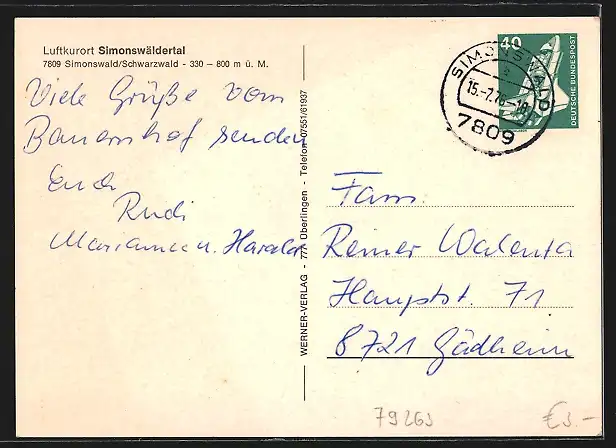 Luftkurort Simonswäldertal
7809 Simonswald/Schwarzwald - 330 – 800 m ü. M.
Viele Grüße vom
Bauernhof senden
Euch
Rudi
Marianne u. Harald
WERNER-VERLAG - 777 Überlingen - Telefon 07551/61937
40
DEUTSCHE BUNDESPOST
SIMONSWALD
15.-7.76-18
7809
Fam.
Reiner Walenta
Hauptstr. 71
8721 Gädheim
79263
€3.-